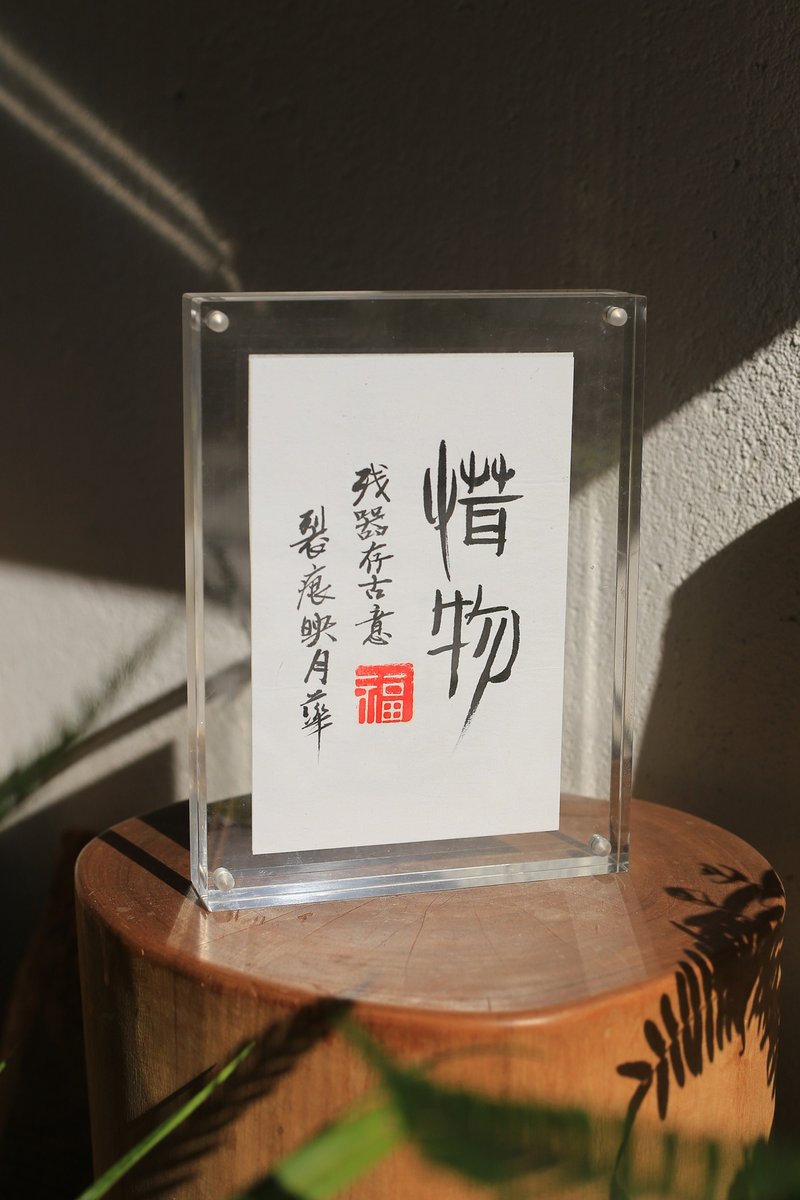 惜物
残器存古意
福
裂痕映月華